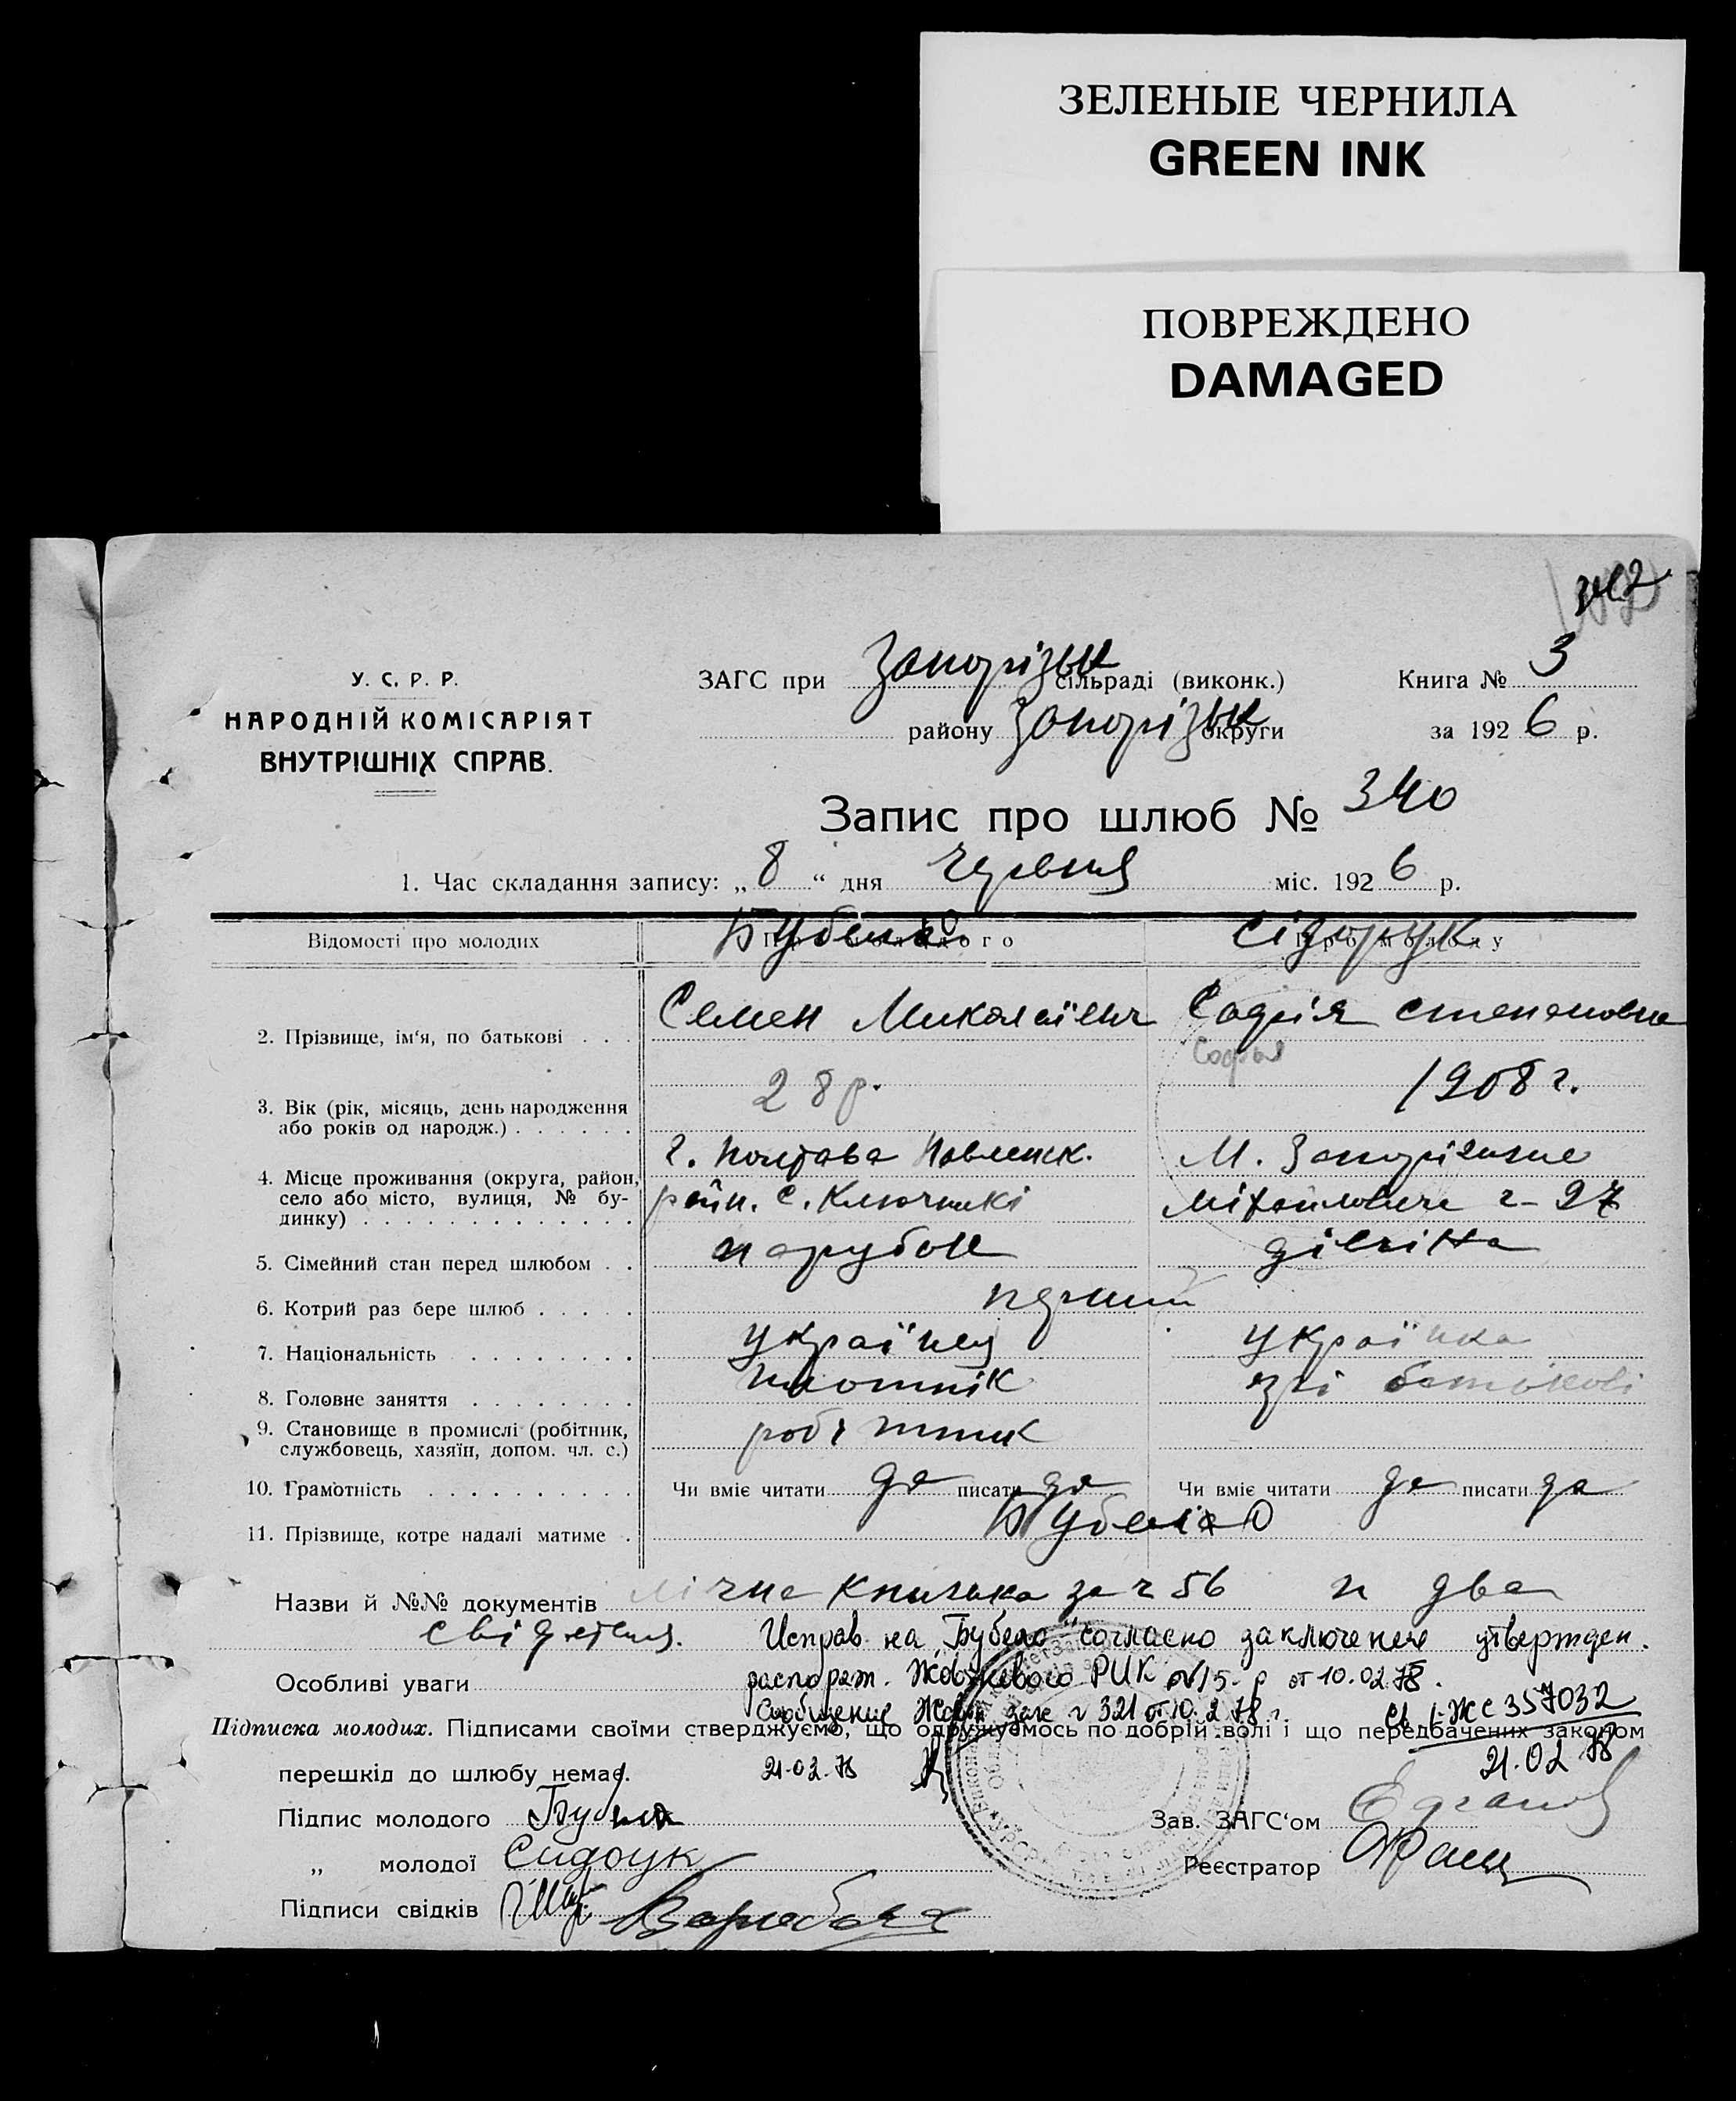 ЗЕЛЕНЫЕ ЧЕРНИЛА
GREEN INK
ПОВРЕЖДЕНО
DAMAGED
У. С. Р. Р.
НАРОДНІЙ КОМІСАРІЯТ
ВНУТРІШНІХ СПРАВ.
ЗАГС при Запорізьк сільраді (виконк.)
району Запорізьк округи
Книга № 3
за 1926 р.
Запис про шлюб № 340
1. Час складання запису: „8“ дня червня міс. 1926 р.
Відомості про молодих
Про молодого
Про молоду
Сідорук
2. Прізвище, ім‘я, по батькові . . .
Семен Миколаївич
Софія Степановна
Софья
3. Вік (рік, місяць, день народження
або років од народж.) . . . . . .
28 р.
1908 г.
4. Місце проживання (округа, район,
село або місто, вулиця, № бу-
динку) . . . . . . . . . . . . .
г. Полтава
райн. с. Ключникі
М. Запоріжжє
27
5. Сімейний стан перед шлюбом . .
парубок
дівчіна
6. Котрий раз бере шлюб . . . . .
перший
7. Національність . . . . . . . .
українец
українка
8. Головне заняття . . . . . . .
плотнік
прі батькові
9. Становище в промислі (робітник,
службовець, хазяїн, допом. чл. с.)
робітник
10. Грамотність . . . . . . . . . .
Чи вміє читати да писати да
Чи вміє читати да писати да
11. Прізвище, котре надалі матиме .
Назви й №№ документів книжка за № 56 и два
свідетеля.
Исправ. на "Бубело" согласно заключения утвержден.
Особливі уваги распоряж. РИК от 10.02.78.
Сообщение 321 от 10.2.78 г. ЖС 357032
Підписка молодих. Підписами своїми стверджуємо, що одружуємось по добрій волі і що передбачених законом
перешкід до шлюбу немає. 21.02.78
21.02.78
Підпис молодого
„ молодої Сидоук
Підписи свідків
Зав. ЗАГС‘ом
Реєстратор